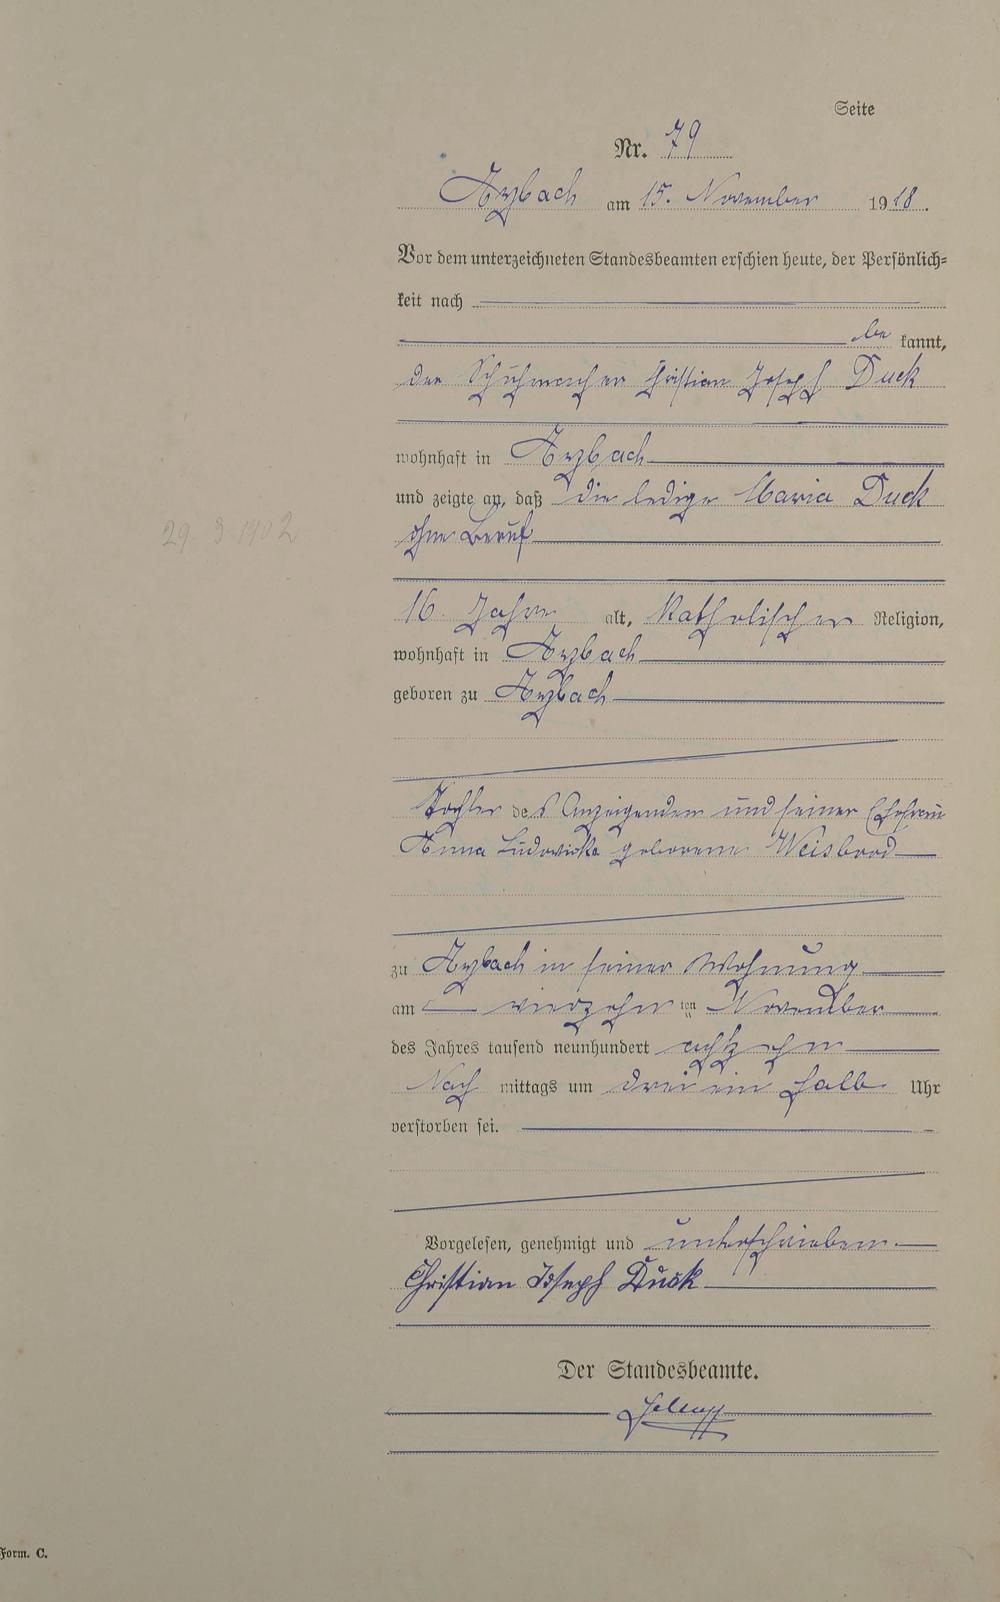 Seite
Nr. 79
Arzbach am 15. November 1918.
Vor dem unterzeichneten Standesbeamten erschien heute, der Persönlich=
keit nach
be kannt,
der Schuhmacher Christian Joseph Duck
wohnhaft in Arzbach
und zeigte an, daß die ledige Maria Duck
ohne Beruf
29. 3. 1902
16 Jahre alt, katholischer Religion,
wohnhaft in Arzbach
geboren zu Arzbach
Tochter des Anzeigenden und seiner Ehefrau
Anna Ludovicka geborene Weisbrod
zu Arzbach in seiner Wohnung
am vierzehn ten November
des Jahres tausend neunhundert achtzehn
Nach mittags um drei ein halb Uhr
verstorben sei.
Vorgelesen, genehmigt und unterschrieben.
Christian Joseph Duck
Der Standesbeamte.
Form. C.